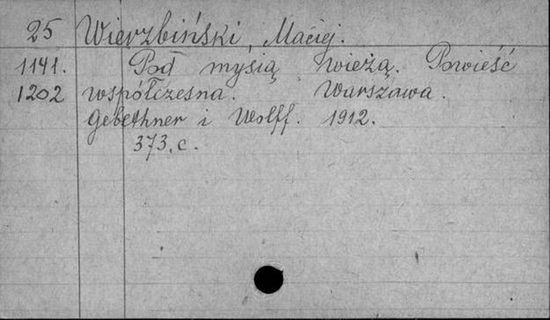 25 Wierzbiński, Maciej.
1141. Pod mysią wieżą. Powieść
1202 współczesna. Warszawa.
Gebethner i Wolff. 1912.
373. c.